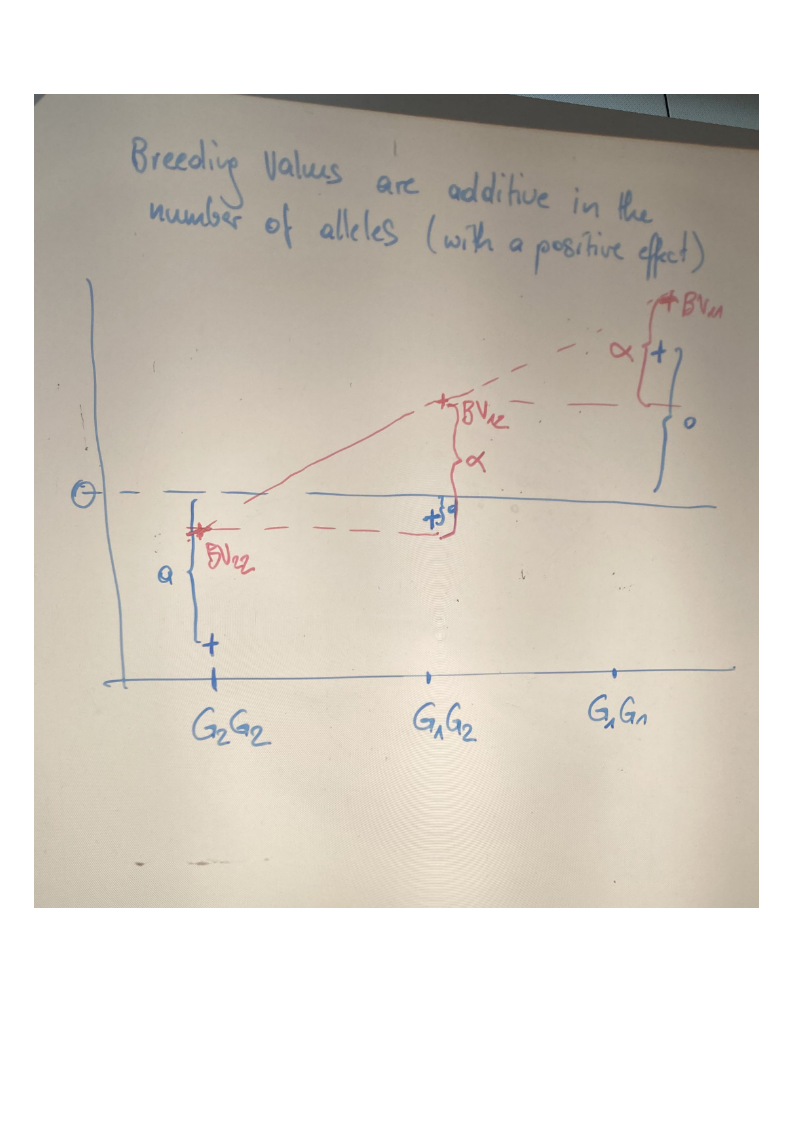 Breeding Values are additive in the
number of alleles (with a positive effect)
BV₁₁
α
BV₁₂
α
0
d
BV₂₂
a
G₂G₂
G₁G₂
G₁G₁